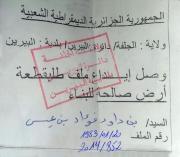 الجمهورية الجزائرية الديمقراطية الشعبية
ولاية : الجلفة/ دائرة البيرين/ بلدية : البيرين
وصل إيداع ملف طلب قطعة
أرض صالحة للبناء
السيد/ بن داود فؤاد بن عيسى
1953/01/20
رقم الملف 2019/952